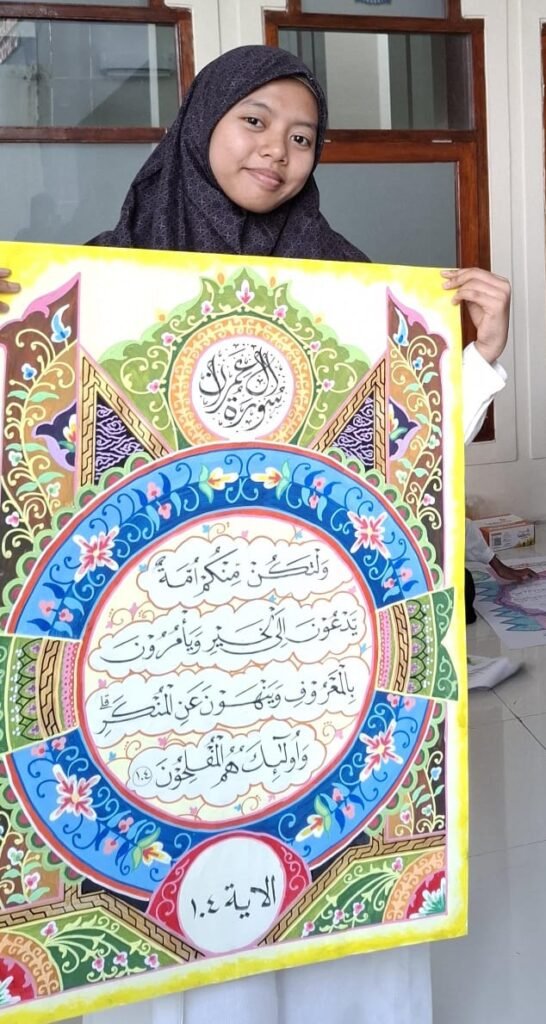 سورة آل عمران
ولتكن منكم أمة
يدعون إلى الخير ويأمرون
بالمعروف وينهون عن المنكر ۗ
وأولئك هم المفلحون ١٠٤
الاية ١٠٤